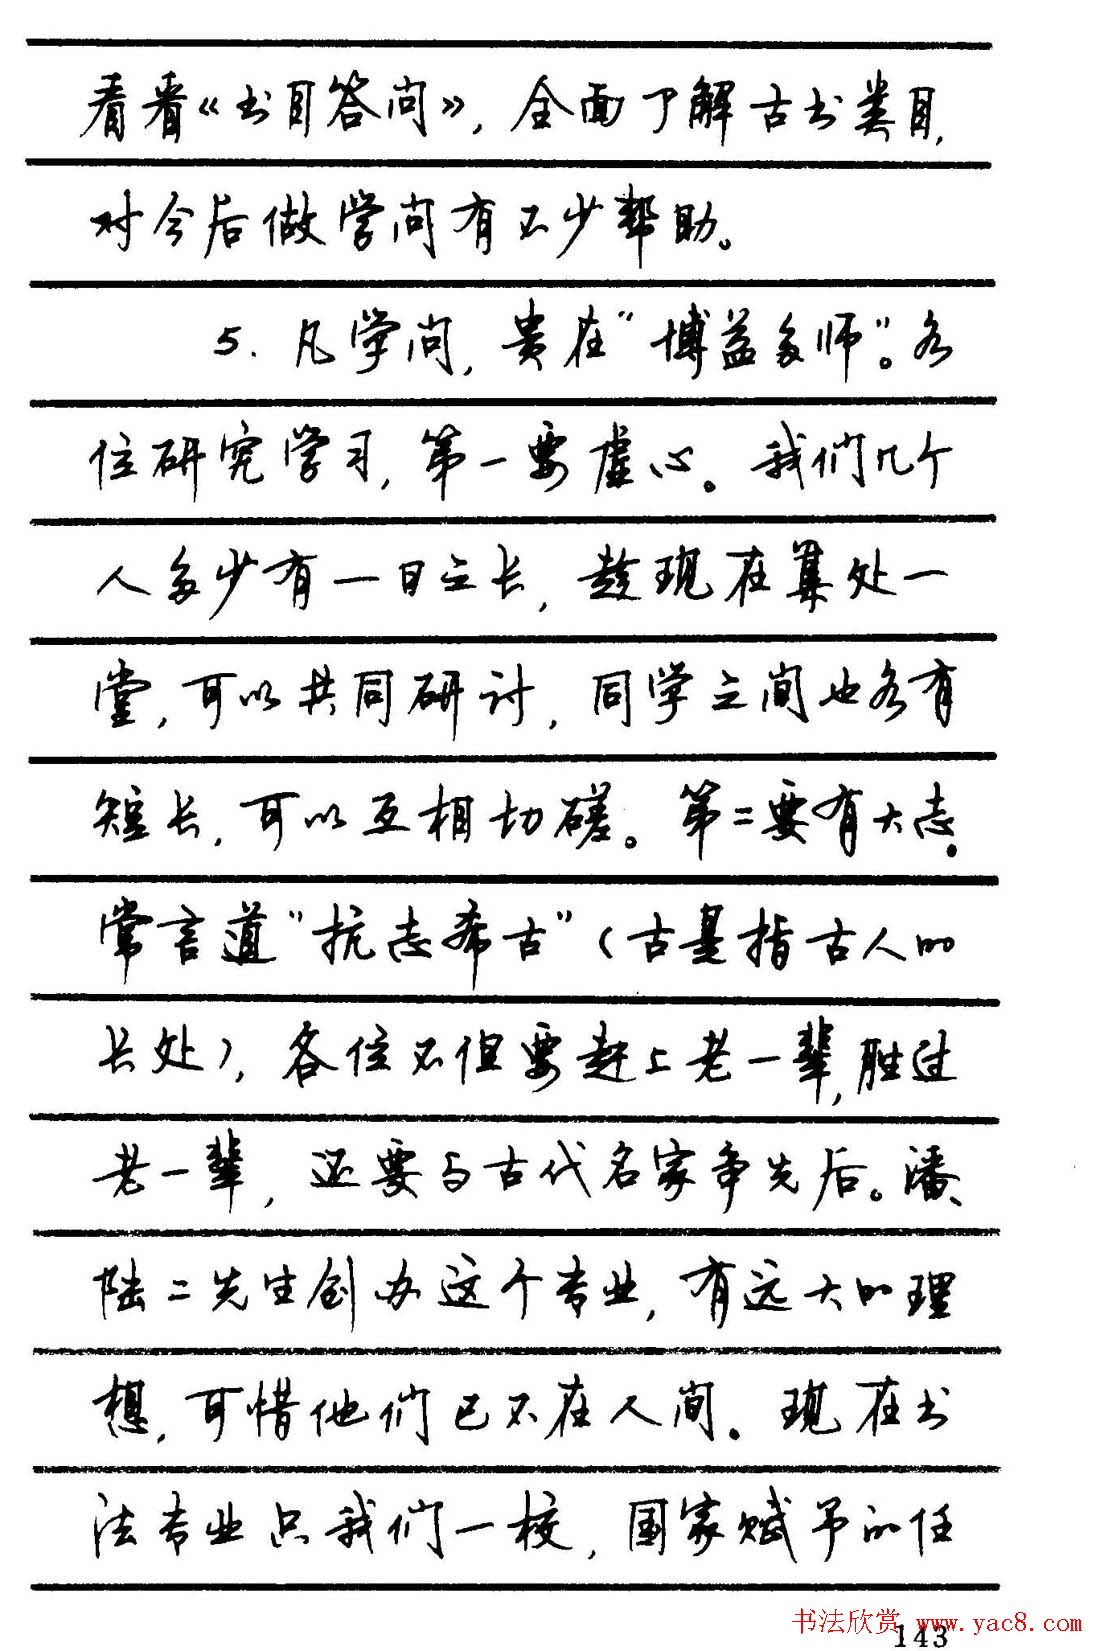 看看《书目答问》，全面了解古书类目，
对今后做学问有不少帮助。
5. 凡学问，贵在“博益多师”。各
位研究学习，第一要虚心。我们几个
人多少有一日之长，趁现在集处一
堂，可以共同研讨，同学之间也各有
短长，可以互相切磋。第二要有大志。
常言道“抗志希古”（古是指古人的
长处），各位不但要赶上老一辈，胜过
老一辈，还要与古代名家争先后。潘、
陆二先生创办这个专业，有远大的理
想，可惜他们已不在人间。现在书
法专业只我们一校，国家赋予的任
书法欣赏 www.yac8.com
143